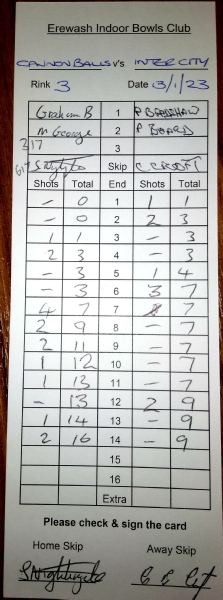 Erewash Indoor Bowls Club
CANNONBALLS v's INTERCITY
Rink 3 Date 3/1/23
Graham B 1 P BRADSHAW
M George 2 P BEARD
217 3
S Nightingale Skip C CROFT
Shots Total End Shots Total
- 0 1 1 1
- 0 2 2 3
1 1 3 - 3
2 3 4 - 3
- 3 5 1 4
- 3 6 3 7
4 7 7 - 7
2 9 8 - 7
2 11 9 - 7
1 12 10 - 7
1 13 11 - 7
- 13 12 2 9
1 14 13 - 9
2 16 14 - 9
15
16
Extra
Please check & sign the card
Home Skip Away Skip
S Nightingale